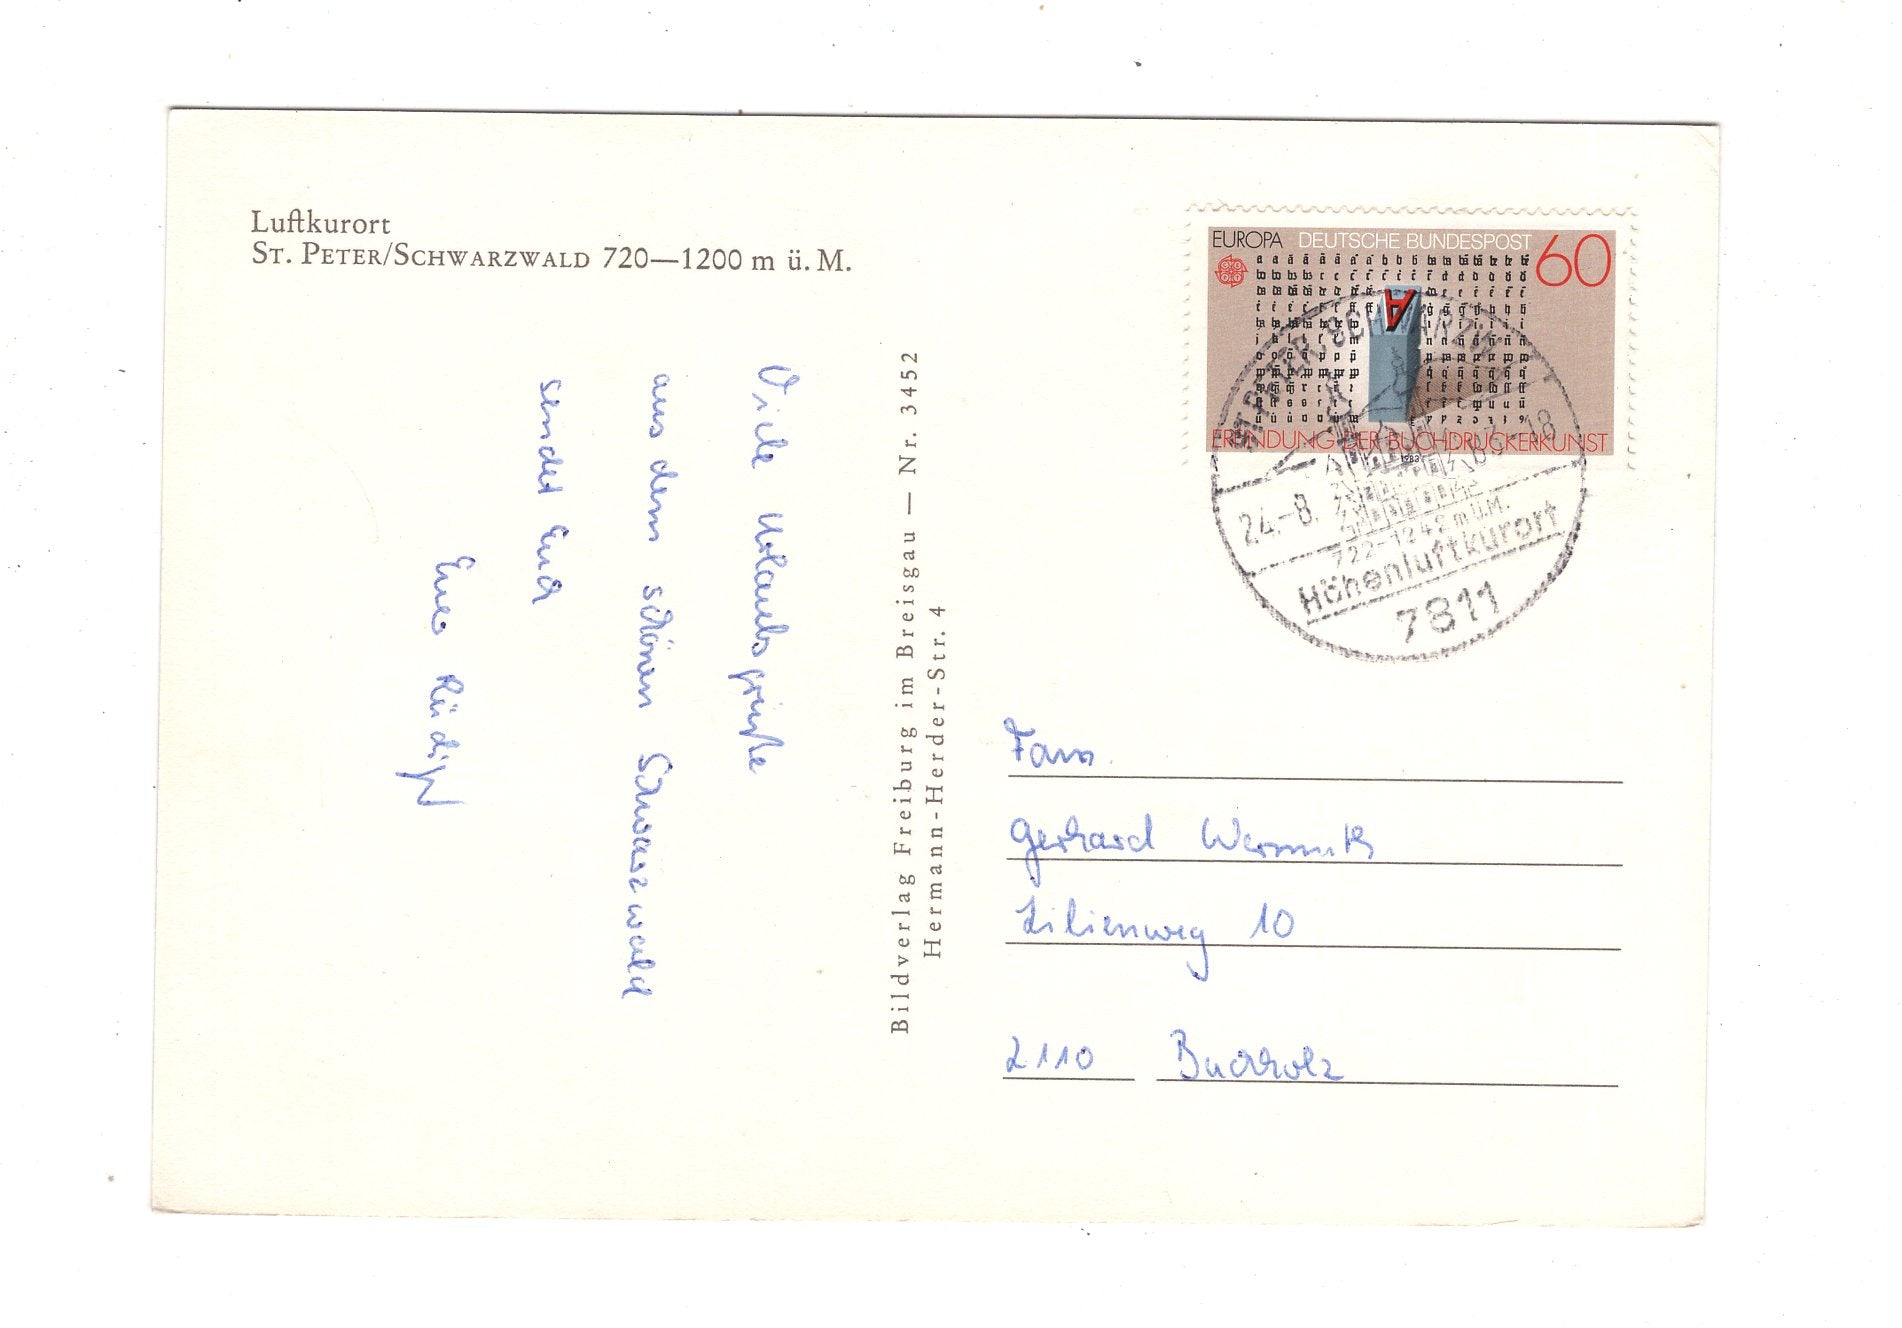 Luftkurort
ST. PETER/SCHWARZWALD 720—1200 m ü. M.
Viele Urlaubsgrüße
aus dem schönen Schwarzwald
sendet Euch
Euer Rüdiger
Bildverlag Freiburg im Breisgau — Nr. 3452
Hermann-Herder-Str. 4
EUROPA DEUTSCHE BUNDESPOST 60
ERFINDUNG DER BUCHDRUCKERKUNST
1983
ST. PETER, SCHWARZW
24.-8. 83-18
722-1242 m ü.M.
Höhenluftkurort
7811
Fam.
Gerhard Wermuth
Lilienweg 10
2110 Buchholz